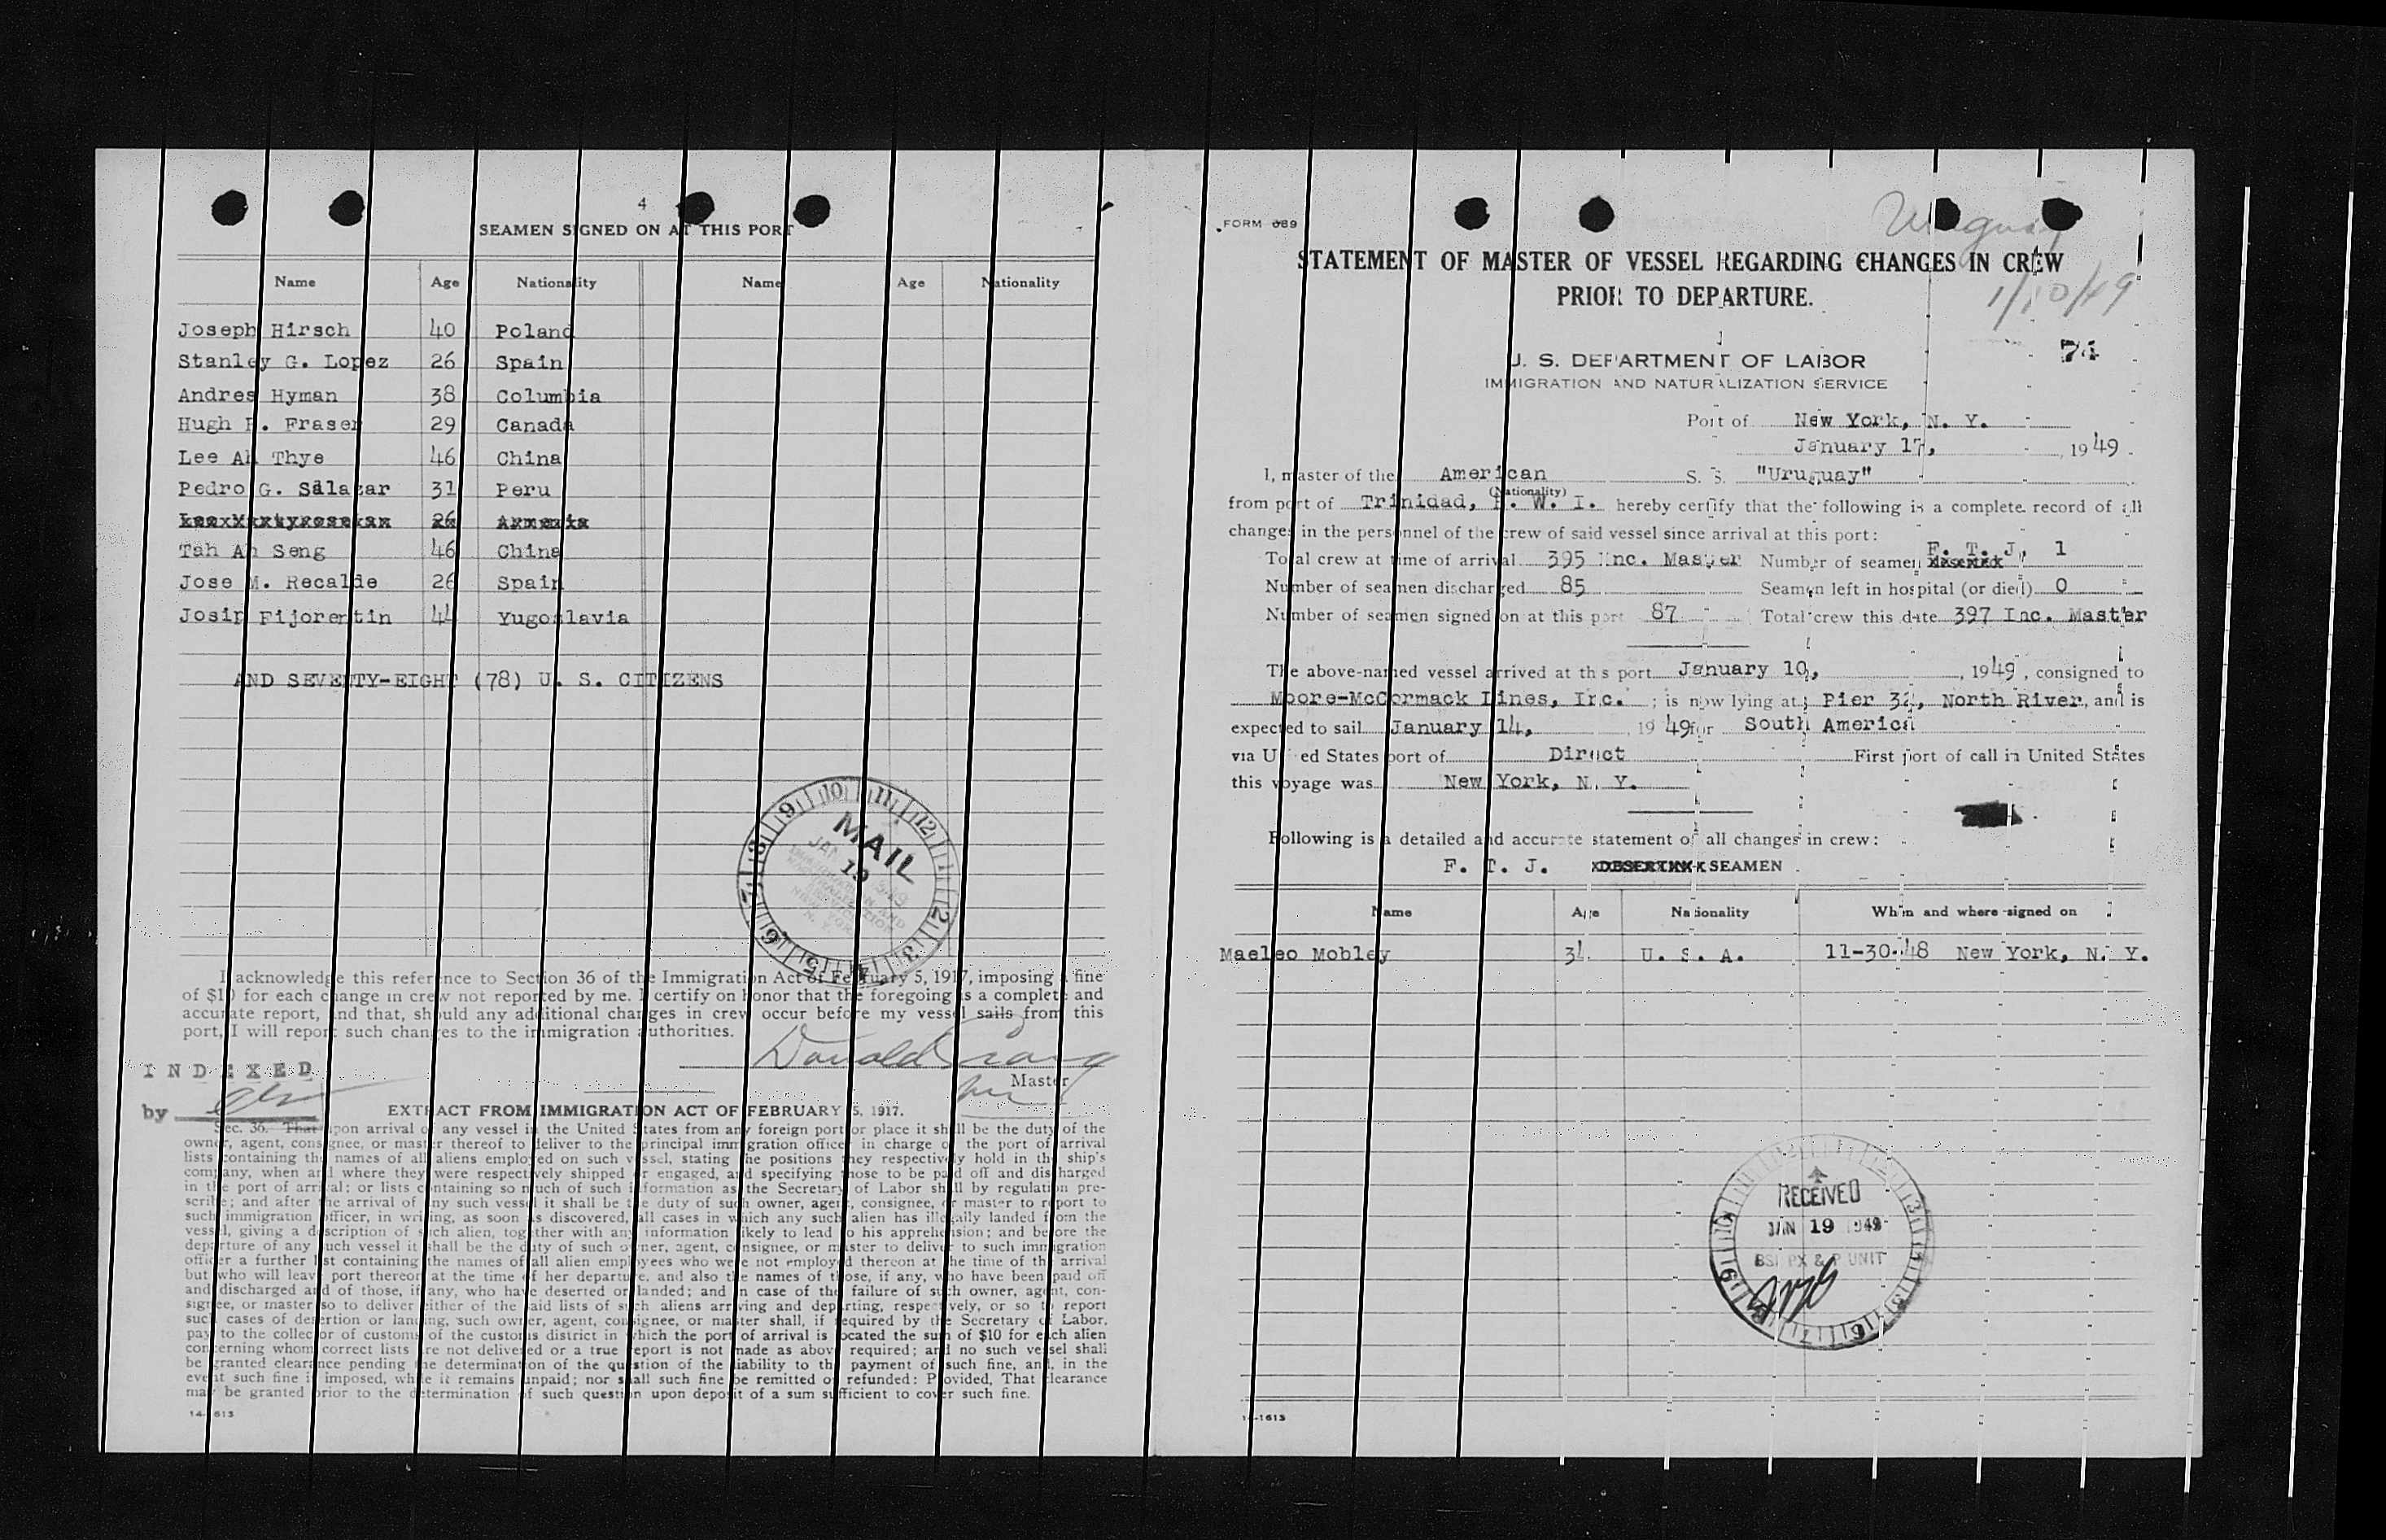 4
SEAMEN SIGNED ON AT THIS PORT
Name Age Nationality Name Age Nationality
Joseph Hirsch 40 Poland
Stanley G. Lopez 26 Spain
Andres Hyman 38 Columbia
Hugh Fraser 29 Canada
Lee Ah Thye 46 China
Pedro G. Salazar 31 Peru
26 Armenia
Tah Ah Seng 46 China
Jose M. Recalde 26 Spain
Josip Fijorentin 44 Yugoslavia
AND SEVENTY-EIGHT (78) U. S. CITIZENS
MAIL
19
I acknowledge this reference to Section 36 of the Immigration Act of February 5, 1917, imposing a fine
of $10 for each change in crew not reported by me. I certify on honor that the foregoing is a complete and
accurate report, and that, should any additional changes in crew occur before my vessel sails from this
port, I will report such changes to the immigration authorities.
Donald
Master
INDEXED
by
EXTRACT FROM IMMIGRATION ACT OF FEBRUARY 5, 1917.
Sec. 36. That upon arrival of any vessel in the United States from any foreign port or place it shall be the duty of the
owner, agent, consignee, or master thereof to deliver to the principal immigration officer in charge of the port of arrival
lists containing the names of all aliens employed on such vessel, stating the positions they respectively hold in the ship's
company, when and where they were respectively shipped or engaged, and specifying those to be paid off and discharged
in the port of arrival; or lists containing so much of such information as the Secretary of Labor shall by regulation pre-
scribe; and after the arrival of any such vessel it shall be the duty of such owner, agent, consignee, or master to report to
such immigration officer, in writing, as soon as discovered, all cases in which any such alien has illegally landed from the
vessel, giving a description of such alien, together with any information likely to lead to his apprehension; and before the
departure of any such vessel it shall be the duty of such owner, agent, consignee, or master to deliver to such immigration
officer a further list containing the names of all alien employees who were not employed thereon at the time of the arrival
but who will leave port thereon at the time of her departure, and also the names of those, if any, who have been paid off
and discharged and of those, if any, who have deserted or landed; and in case of the failure of such owner, agent, con-
signee, or master so to deliver either of the said lists of such aliens arriving and departing, respectively, or so to report
such cases of desertion or landing, such owner, agent, consignee, or master shall, if required by the Secretary of Labor,
pay to the collector of customs of the customs district in which the port of arrival is located the sum of $10 for each alien
concerning whom correct lists are not delivered or a true report is not made as above required; and no such vessel shall
be granted clearance pending the determination of the question of the liability to the payment of such fine, and, in the
event such fine is imposed, while it remains unpaid; nor shall such fine be remitted or refunded: Provided, That clearance
may be granted prior to the determination of such question upon deposit of a sum sufficient to cover such fine.
14-1613
FORM 689
Uruguay
1/10/49
STATEMENT OF MASTER OF VESSEL REGARDING CHANGES IN CREW
PRIOR TO DEPARTURE.
74
U. S. DEPARTMENT OF LABOR
IMMIGRATION AND NATURALIZATION SERVICE
Port of New York, N. Y.
January 17, 1949
I, master of the American S. S. "Uruguay"
(Nationality)
from port of Trinidad, B. W. I. hereby certify that the following is a complete record of all
changes in the personnel of the crew of said vessel since arrival at this port:
Total crew at time of arrival 395 Inc. Master Number of seamen F. T. J. 1
Number of seamen discharged 85 Seamen left in hospital (or died) 0
Number of seamen signed on at this port 87 Total crew this date 397 Inc. Master
The above-named vessel arrived at this port January 10, 1949, consigned to
Moore-McCormack Lines, Inc. ; is now lying at Pier 32, North River, and is
expected to sail January 14, 1949 for South America
via United States port of Direct First port of call in United States
this voyage was New York, N. Y.
Following is a detailed and accurate statement of all changes in crew:
F. T. J. DESERTING SEAMEN
Name Age Nationality When and where signed on
Maeleo Mobley 34 U. S. A. 11-30-48 New York, N. Y.
RECEIVED
JAN 19 1949
BSI PX & P UNIT
14-1613